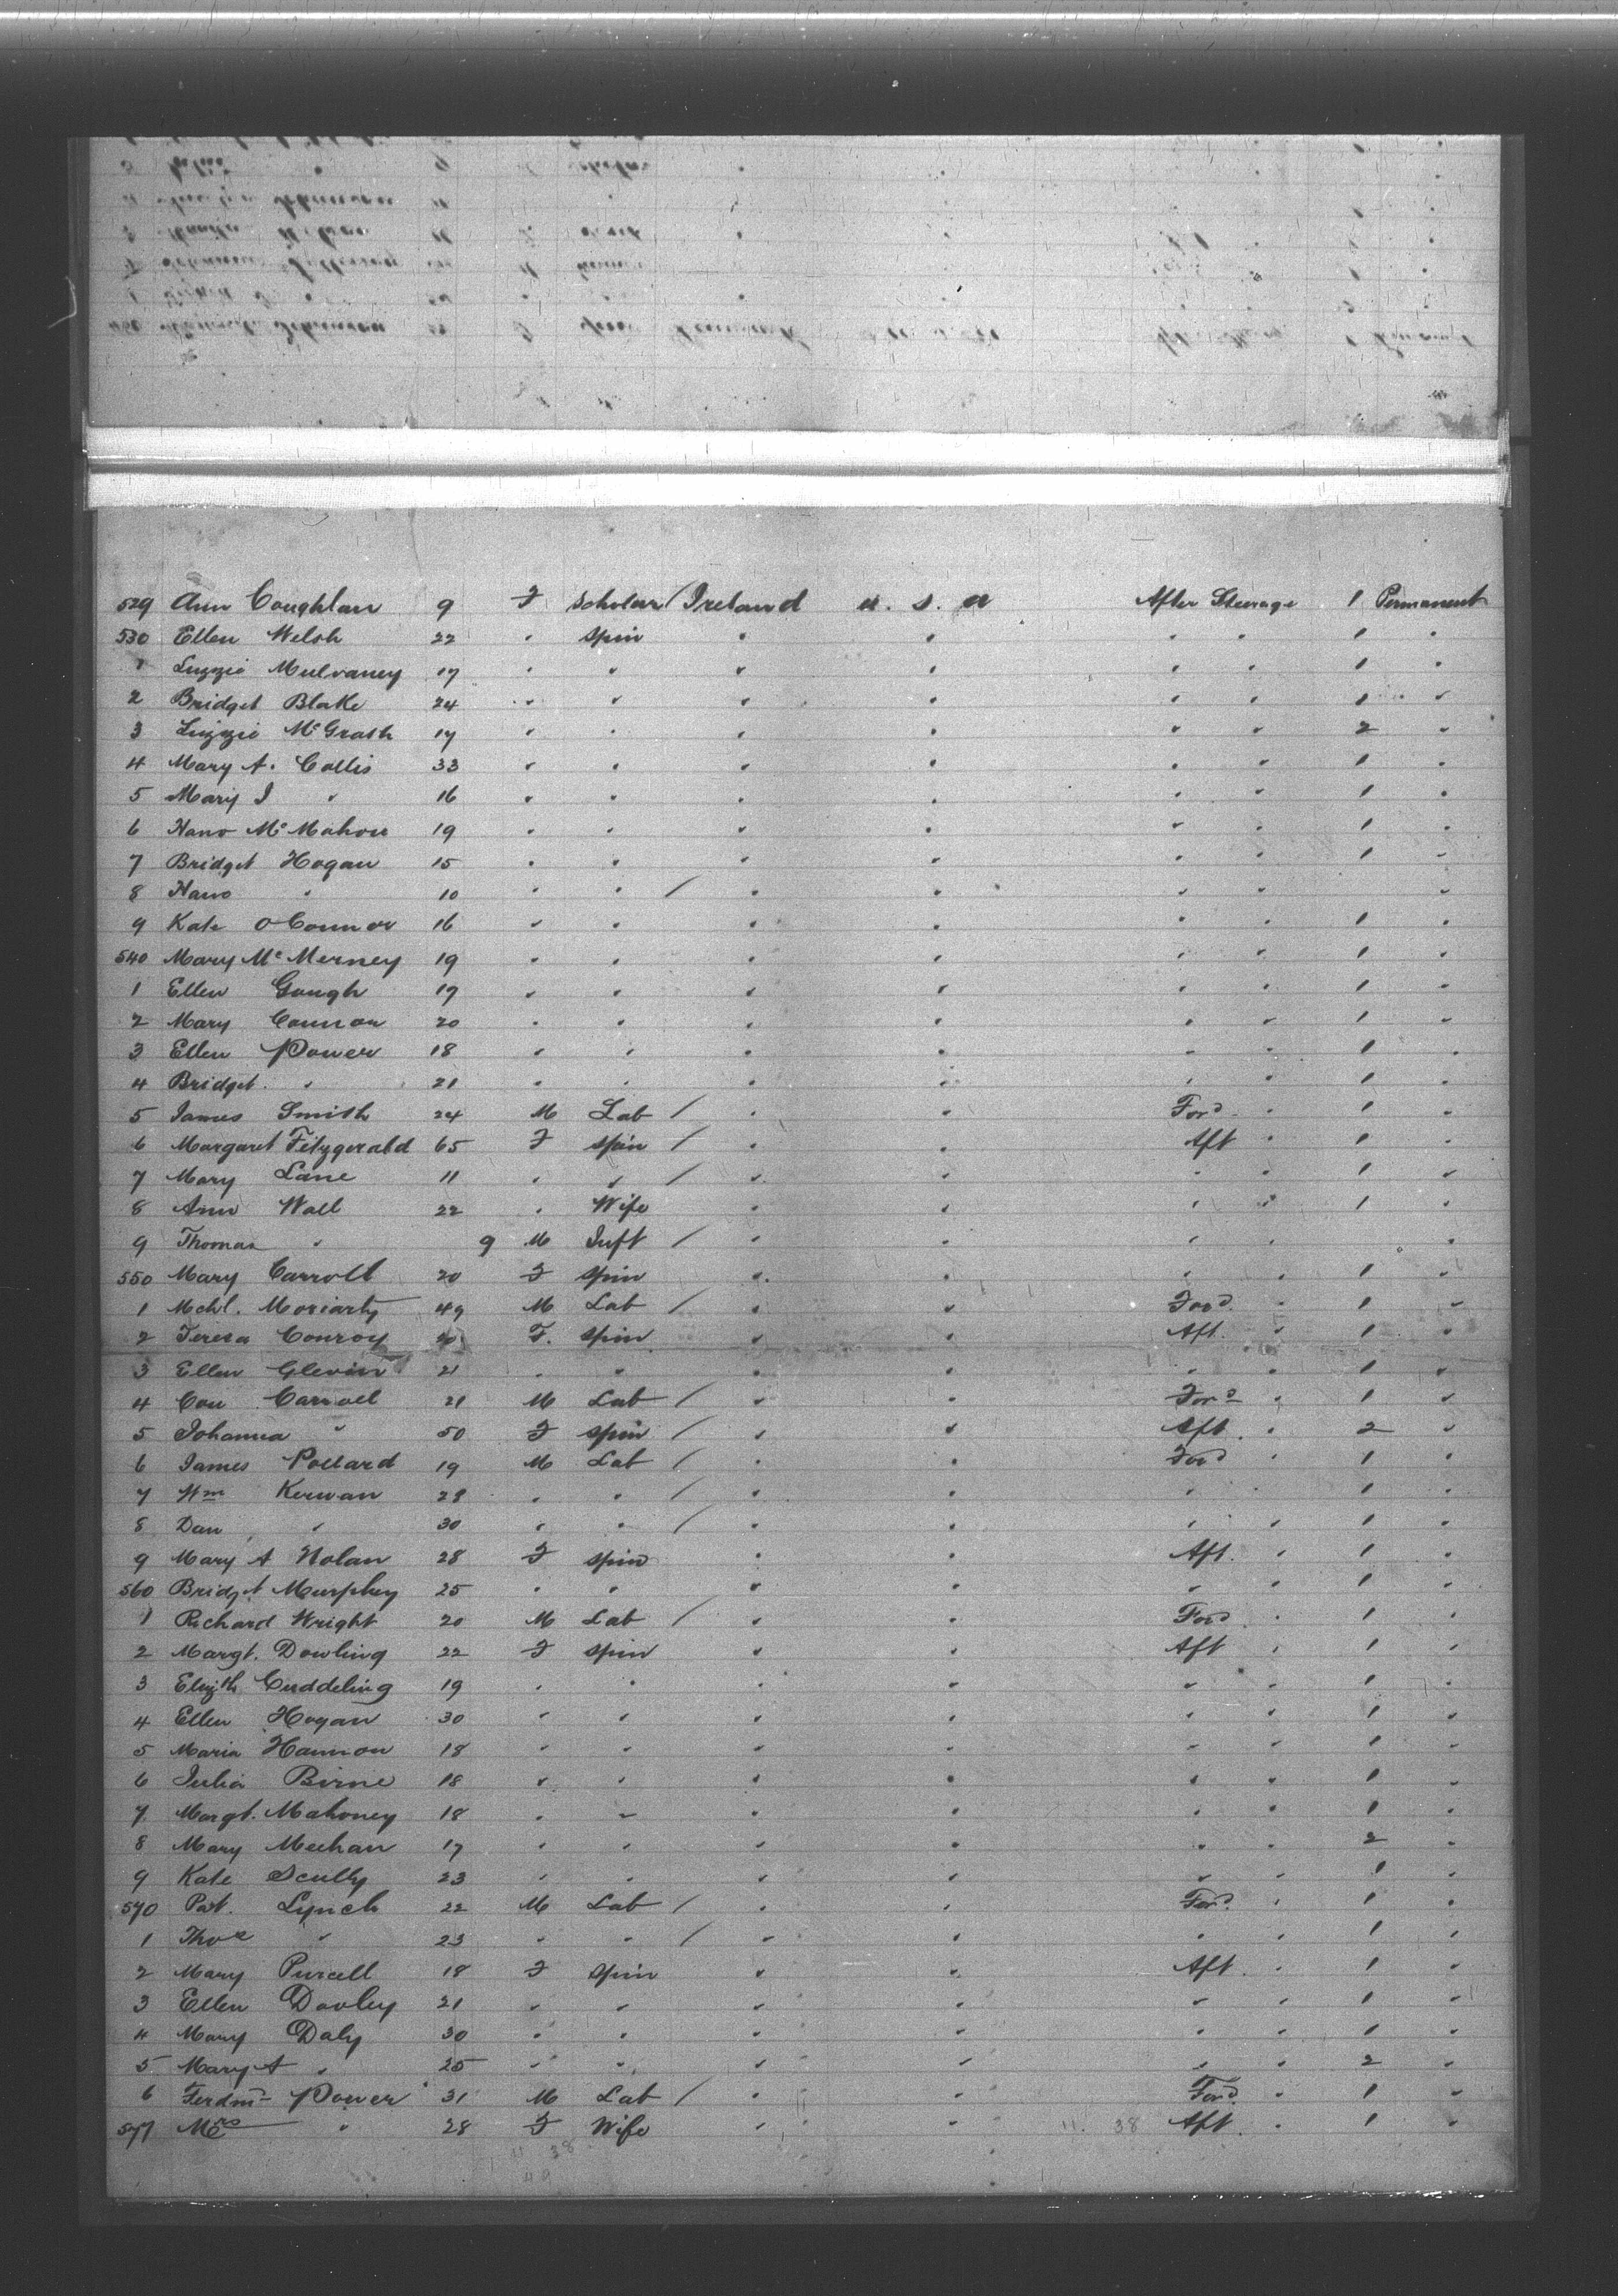 529 Ann Coughlan 9 F Scholar / Ireland U. S. A After Steerage 1 Permanent
530 Ellen Welsh 22 " Spin " " " " 1 "
1 Lizzie Mulvaney 17 " " " " " " 1 "
2 Bridget Blake 24 " " " " " " 1 "
3 Lizzie McGrath 17 " " " " " " 2 "
4 Mary A. Collis 33 " " " " " " 1 "
5 Mary J " 16 " " " " " " 1 "
6 Hano McMahon 19 " " " " " " 1 "
7 Bridget Hogan 15 " " " " " " 1 "
8 Hano " 10 " " / " " " " "
9 Kate O'Connor 16 " " " " " " 1 "
540 Mary McMerney 19 " " " " " " 1 "
1 Ellen Gough 17 " " " " " " 1 "
2 Mary Connor 20 " " " " " " 1 "
3 Ellen Power 18 " " " " " " 1 "
4 Bridget " 21 " " " " " " 1 "
5 James Smith 24 M Lab / " " Ford " 1 "
6 Margaret Fitzgerald 65 F Spin / " " Aft " 1 "
7 Mary Lane 11 " " / " " " " 1 "
8 Ann Wall 22 " Wife " " " " 1 "
9 Thomas " 9 M Inft / " " " " "
550 Mary Carroll 20 F Spin " " " " 1 "
1 Mchl. Moriarty 49 M Lab / " " Ford " 1 "
2 Teresa Conroy 20 F. Spin " " Aft. " 1 "
3 Ellen Glevin 21 " " " " " " 1 "
4 Con Carroll 21 M Lab / " " Ford " 1 "
5 Johanna " 50 F Spin / " " Aft. " 2 "
6 James Pollard 19 M Lab / " " Ford " 1 "
7 Wm Kerwan 28 " " / " " " " 1 "
8 Dan " 30 " " / " " " " 1 "
9 Mary A Nolan 28 F Spin " " Aft. " 1 "
560 Bridgt Murphy 25 " " " " " " 1 "
1 Richard Wright 20 M Lab / " " Ford " 1 "
2 Margt. Dowling 22 F Spin " " Aft " 1 "
3 Elizth Cuddeling 19 " " " " " " 1 "
4 Ellen Hogan 30 " " " " " " 1 "
5 Maria Hannon 18 " " " " " " 1 "
6 Julia Birne 18 " " " " " " 1 "
7 Margt. Mahoney 18 " " " " " " 1 "
8 Mary Meehan 17 " " " " " " 2 "
9 Kate Scully 23 " " " " " " 1 "
570 Pat. Lynch 22 M Lab / " " Ford " 1 "
1 Thos " 23 " " / " " " " 1 "
2 Mary Purcell 18 F Spin " " Aft. " 1 "
3 Ellen Dooley 21 " " " " " " 1 "
4 Mary Daly 30 " " " " " " 1 "
5 Mary A " 25 " " " " " " 2 "
6 Ferdnd Power 31 M Lab / " " Ford " 1 "
577 Mrs " 28 F Wife " " 11. 38 Aft. " 1 "
11 38
49